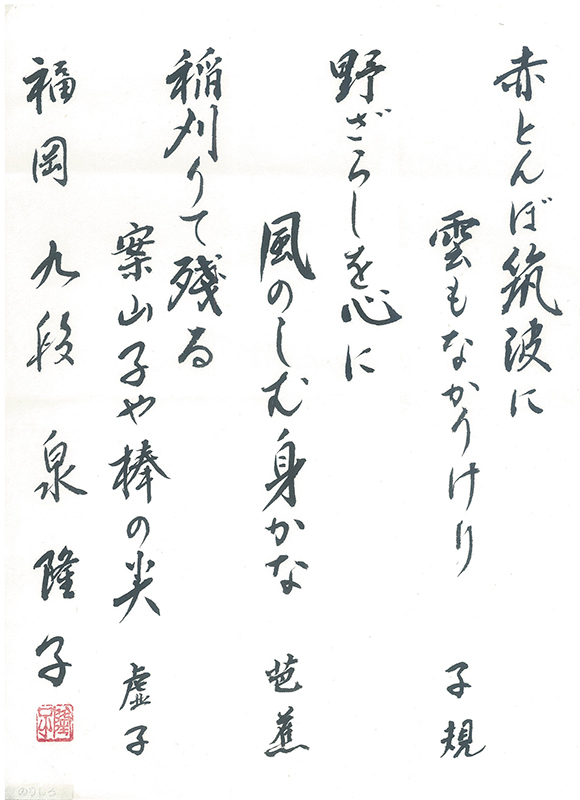 赤とんぼ筑波に
雲もなかりけり 子規
野ざらしを心に
風のしむ身かな 芭蕉
稲刈りて残る
案山子や棒の尖 虚子
福岡 九段 泉 隆子
のりしろ